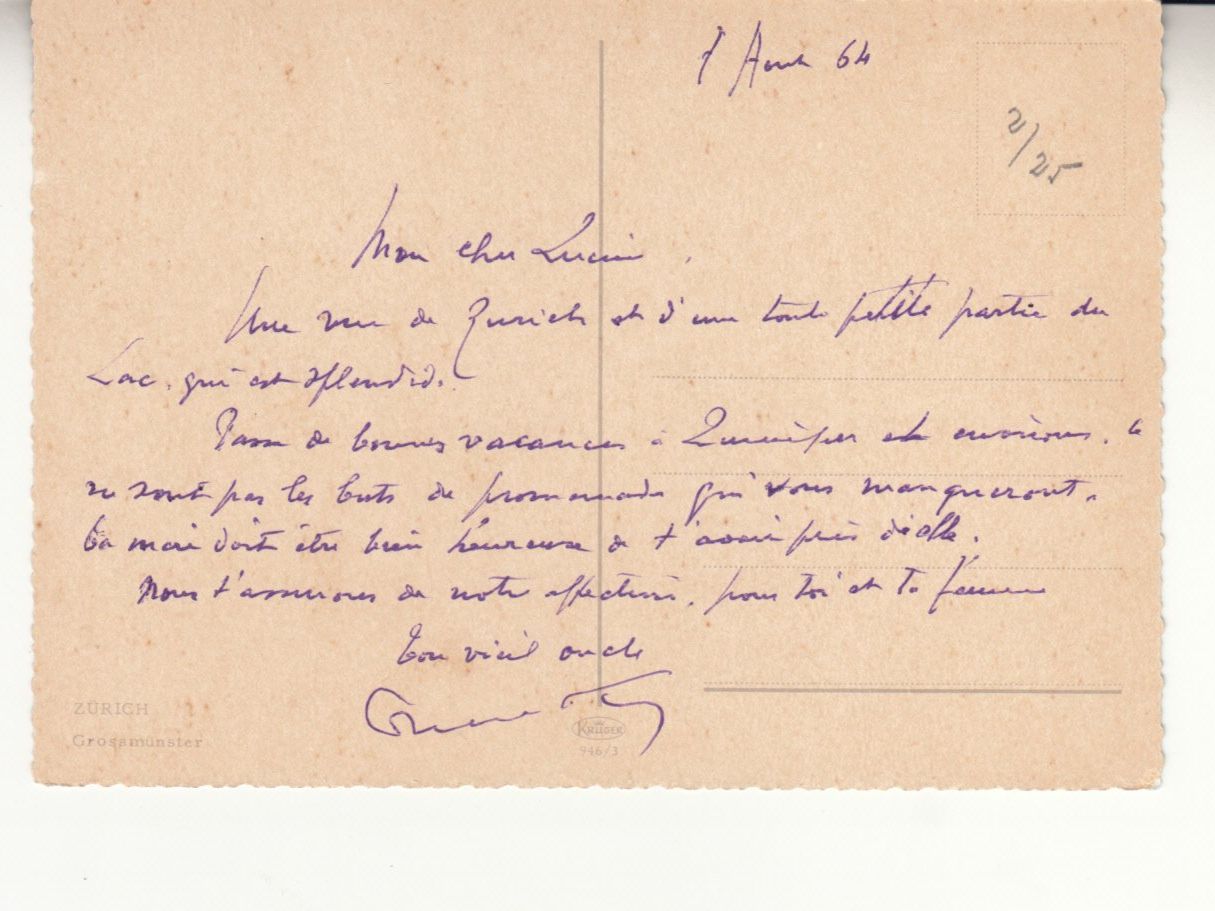 Août 64
2/25
Mon cher Lucien,
Une vue de Zurich et d'une toute petite partie du
Lac, qui est splendide.
Passe de bonnes vacances à Quimper et environs. Ce
ne sont pas les buts de promenades qui vous manqueront.
Ta mère doit être bien heureuse de t'avoir près d'elle.
Nous t'assurons de notre affection, pour toi et ta femme
Ton vieil oncle
ZÜRICH
Grossmünster
KRÜGER
946/3